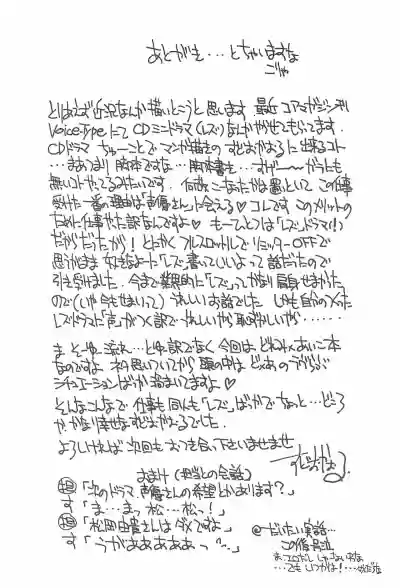 あとがき…とちゃいますな
ごや
とりあえず近況なんか描いとこうと思います 最近 コアマガジン刊
VoiceTypeにて CDミニドラマ(レズ)なんかかせてもらってます。
CDドラマ ちゅーことで マンガ描きの すどおかおるに出来るコト
…まあつまり 脚本ですな…脚本書き…すげー〜がらにも
無いコトやってるみたいです。何故こーなったかは置いといて この仕事
受けた一番の理由は「声優さん」に会える♥ コレです このメリットの
ために仕事やた訳なんですよ♥ もーひとつは「レズ」ドラマ
だからだったが! とにかく フルスロットルで リミッターOFFで
思うがまま 好きなよーに「レズ」書いていいよって 話だったので
引き受けました。今まで 業界的に「レズ」ってかなり 肩身せまかった
ので(いや今もせまいって) うれしいお話でした しかも自分のつくった
レズドラマに「声」がつく訳で うれしいやら 恥ずかしいやら……
ま そーゆー流れ…とゆー訳でなく 今回は どれみ×あいこ本
なのですよ ネタ思いついてから 頭の中は ど×あの うらぶら
シチュエーションばっか 溜まいてますよ♥
そんなこんなで 仕事も同人も「レズ」ばっかで ちょっと…どころ
か、かなり幸せな すどおかおるでした。
よろしければ 次回も おつき合い下さいませませ
すどおかおる
おまけ (担当との会話)
担「次のドラマ、声優さんの希望とかあります?」
す「ま…まっ松…松っ!」
担「松岡由貴さんはダメですよ」
す「うがぁあああぁっ…」
@だいたい実話…
この後号泣
…でも いつかは!…